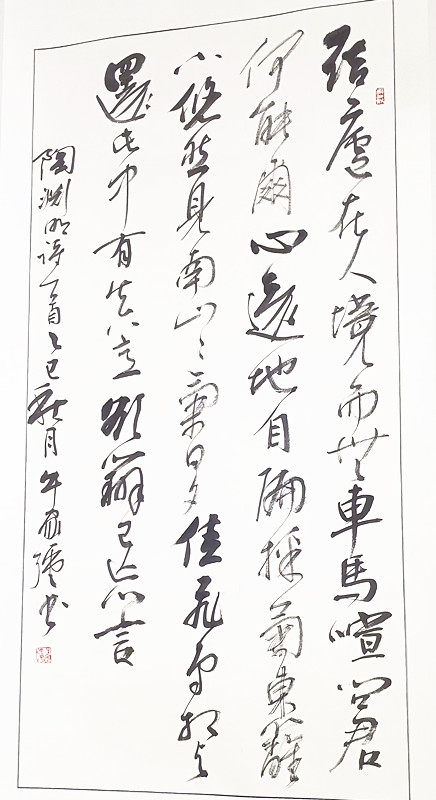 結廬在人境而無車馬喧问君
何能爾心遠地自偏採菊東籬
下悠然見南山〻氣日夕佳飛鳥相与
還此中有真意欲辯已忘言
陶渊明诗一首乙巳秋月 书